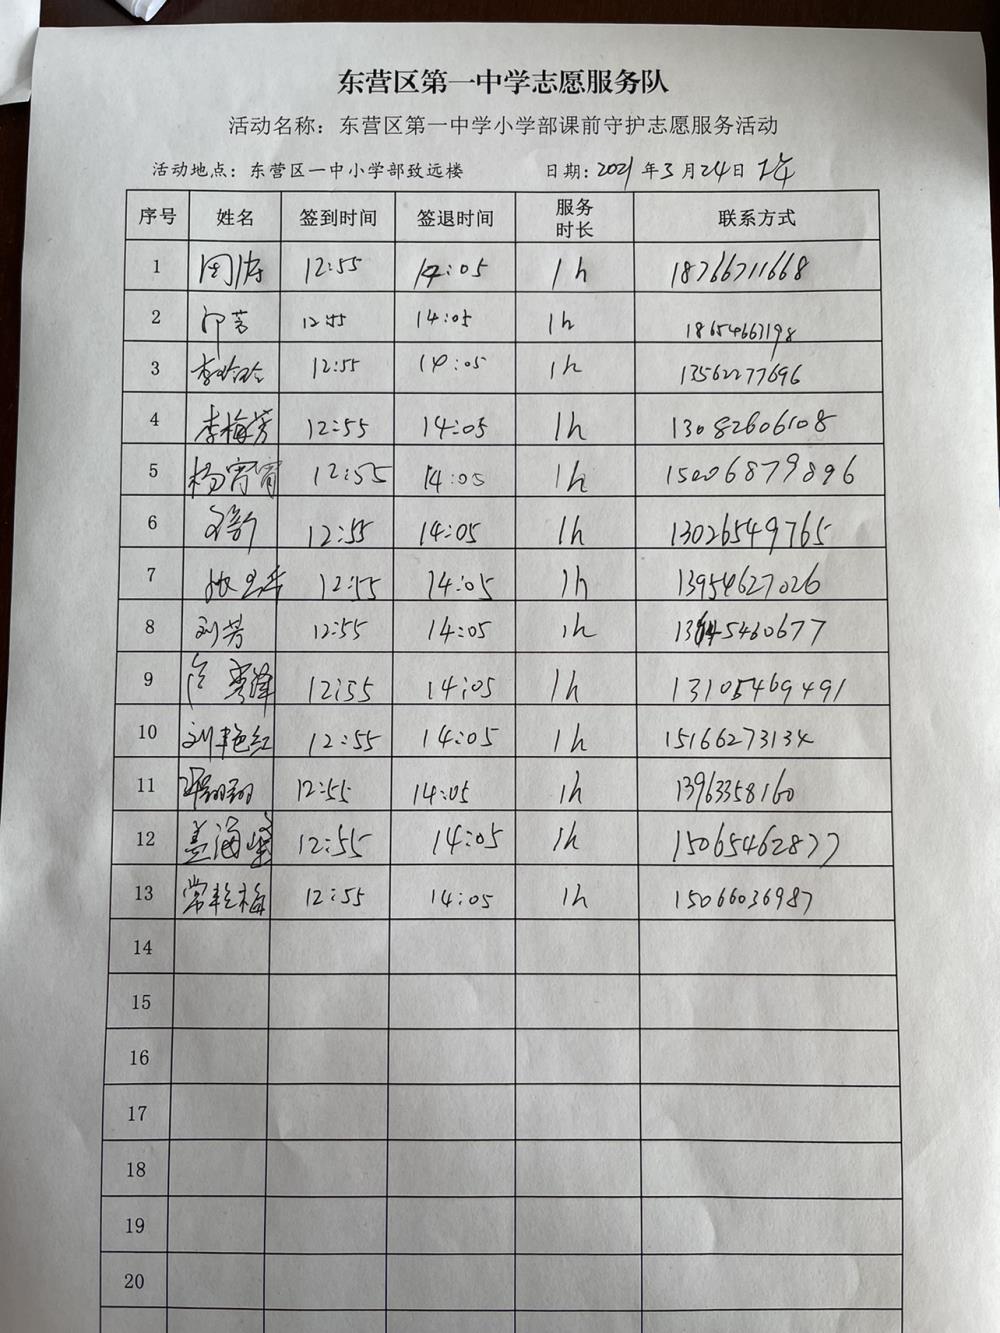 东营区第一中学志愿服务队
活动名称：东营区第一中学小学部课前守护志愿服务活动
活动地点：东营区一中小学部致远楼 日期：2021年3月24日
序号 姓名 签到时间 签退时间 服务时长 联系方式
1 周涛 12:55 14:05 1h 18766711668
2 邝芳 12:55 14:05 1h 18654663198
3 李玲玲 12:55 14:05 1h 13562277696
4 李梅芳 12:55 14:05 1h 13082606108
5 杨宵宵 12:55 14:05 1h 15006879896
6 12:55 14:05 1h 13026549765
7 12:55 14:05 1h 13954627026
8 刘芳 12:55 14:05 1h
9 12:55 14:05 1h 13105469491
10 刘艳红 12:55 14:05 1h 15166273134
11 12:55 14:05 1h 13963358160
12 盖海峰 12:55 14:05 1h 15065462877
13 常乾梅 12:55 14:05 1h 15066036987
14
15
16
17
18
19
20